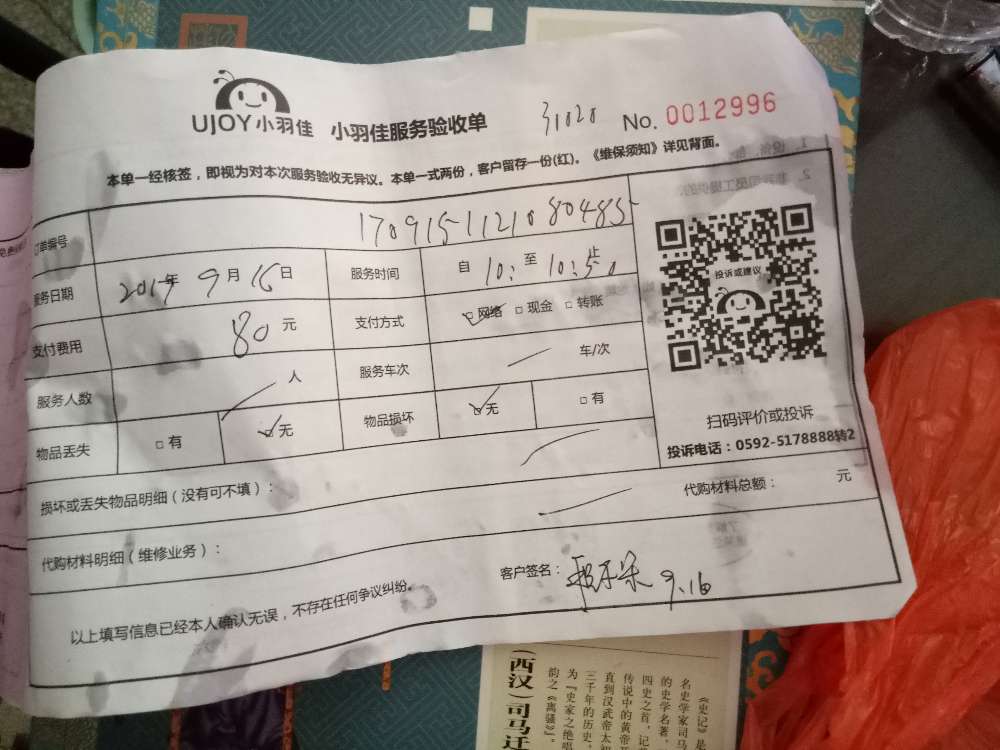 UJOY小羽佳 小羽佳服务验收单 31020 No. 0012996
本单一经核签，即视为对本次服务验收无异议。本单一式两份，客户留存一份(红)。《维保须知》详见背面。
订单编号 1709151121080485
服务日期 2017年 9月 16日 服务时间 自 10: 至 10:50 止
支付费用 80 元 支付方式 □网络 □现金 □转账
服务人数 人 服务车次 车/次
物品丢失 □有 □无 物品损坏 □无 □有
投诉或建议
扫码评价或投诉
投诉电话：0592-5178888转2
损坏或丢失物品明细（没有可不填）：
代购材料明细（维修业务）： 代购材料总额： 元
以上填写信息已经本人确认无误，不存在任何争议纠纷。 客户签名： 9.16
（西汉）司马迁
《史记》是
名史学家司马
的史学名著，
四史之首，记
传说中的黄帝
直到汉武帝太初
三千年的历史。
为『史家之绝唱
韵之《离骚》』。